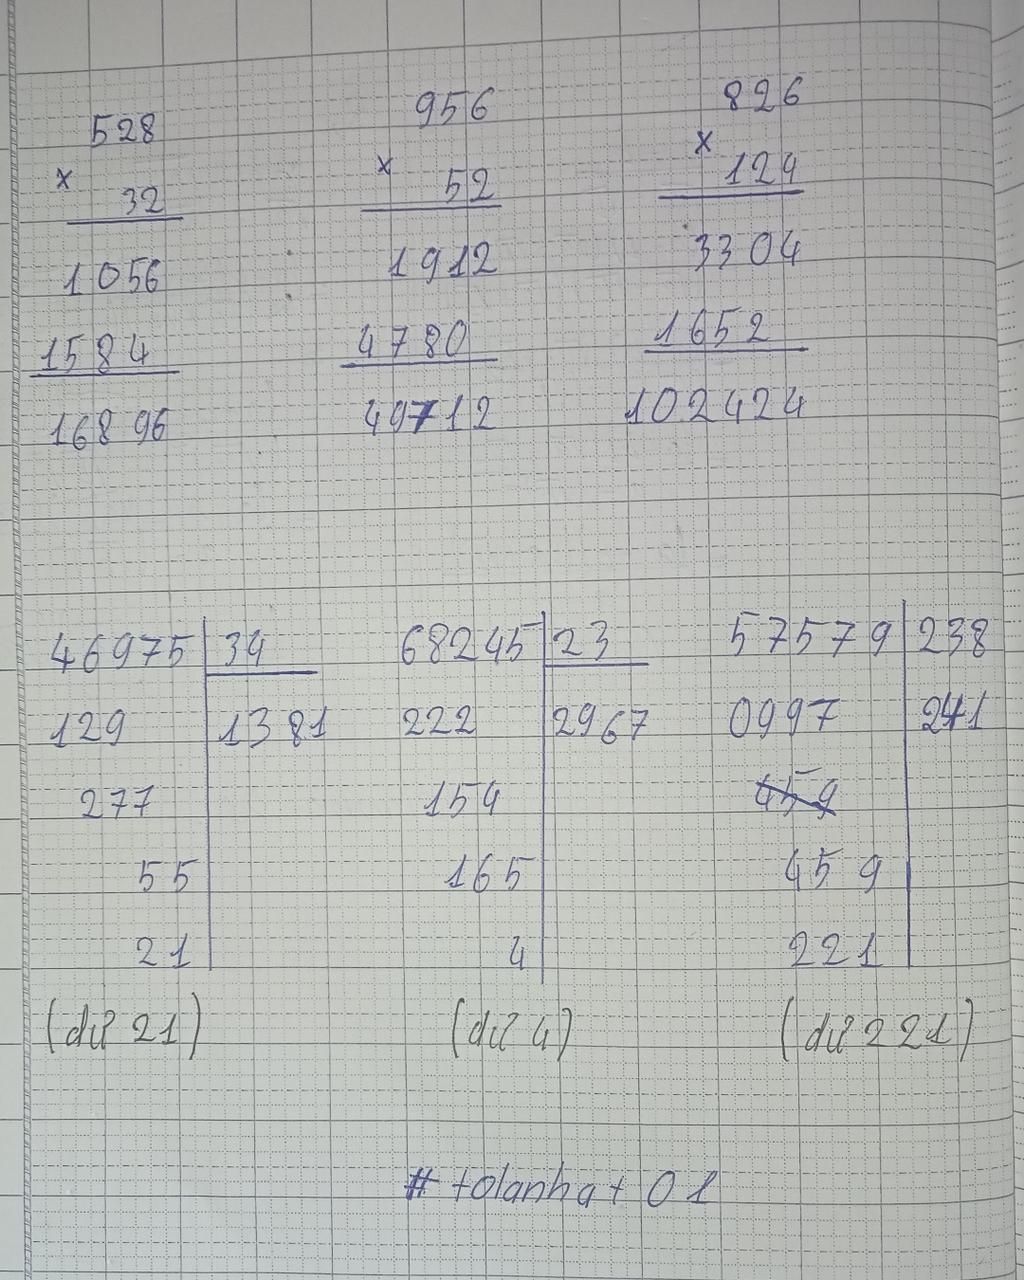 528 956 826
x x x
32 52 124
1056 1912 3304
1584 4780 1652
16896 49712 102424
46975 34 68245 23 57579 238
129 1381 222 2967 0997 241
277 154 459
55 165 459
21 4 221
(dư 21) (dư 4) (dư 221)
# tolanhat 01